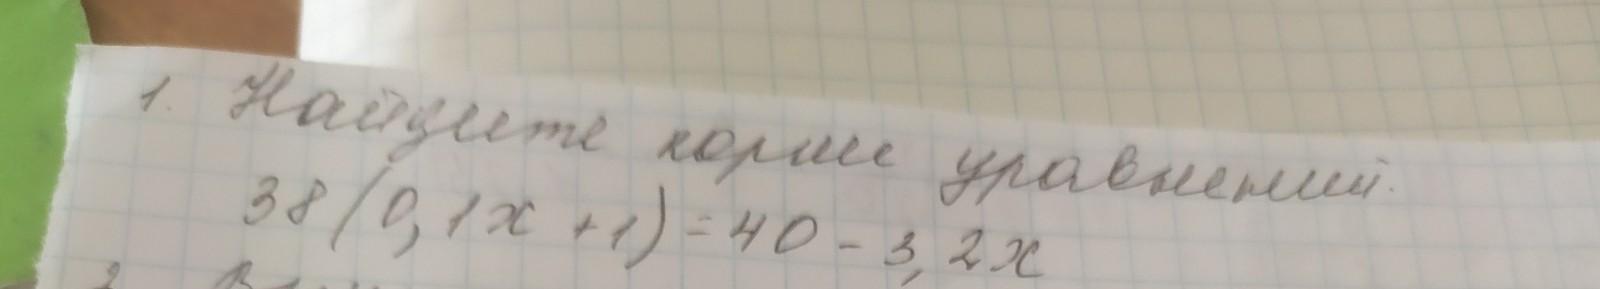 1. Найдите корни уравнений.
38(0,1x+1)=40-3,2x
2.